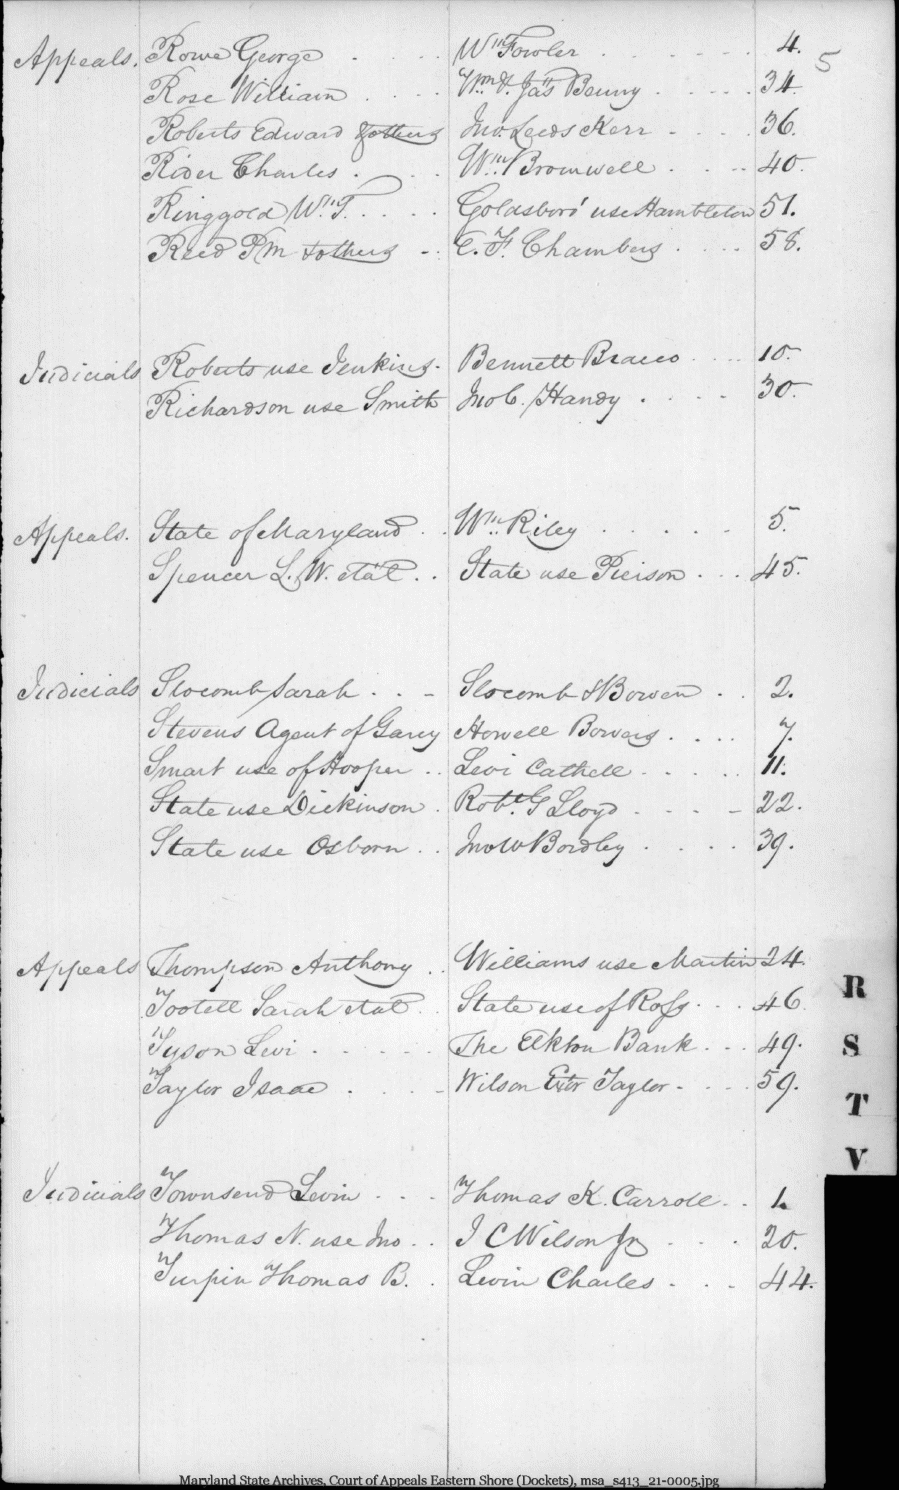 5
Appeals. Rowe George . . . Wm Fowler . . . . . 4.
Rose William . . . . Wm & Jas Benny . . . . . 34.
Roberts Edward & others Jno. Leeds Kerr . . . . 36.
Rider Charles . . . Wm Bromwell . . . . 40.
Ringgold Wm T. . . . . Goldsboro' use Hambleton 51.
Reed P M & others . . E. F. Chambers . . . . 58.
Judicials Roberts use Jenkins . Bennett Bracco . . . . 10.
Richardson use Smith Jno C. Handy . . . . 30.
Appeals. State of Maryland . . Wm Riley . . . . . 5.
Spencer L. W. et al . . State use Pierson . . . 45.
Judicials Slocomb Sarah . . . Slocomb & Bowen . . 2.
Stevens Agent of Garey Howell Bowers . . . . 7.
Smart use of Hooper . . Levi Cathell . . . . . 11.
State use Dickinson . Robt. G Lloyd . . . . 22.
State use Osborn . . Jno W Bordley . . . . 39.
Appeals Thompson Anthony . . Williams use Martin 24.
Tootell Sarah et al . . State use of Ross . . . 46
Tyson Levi . . . . . The Elkton Bank . . . 49.
Taylor Isaac . . . . Wilson Extr Taylor . . . . 59.
Judicials Townsend Levin . . . Thomas K. Carroll . . 1.
Thomas N. use Jno . . J C Wilson Jr . . . . 20.
Turpin Thomas B. . Levin Charles . . . . 44.
R
S
T
V
Maryland State Archives, Court of Appeals Eastern Shore (Dockets), msa_s413_21-0005.jpg